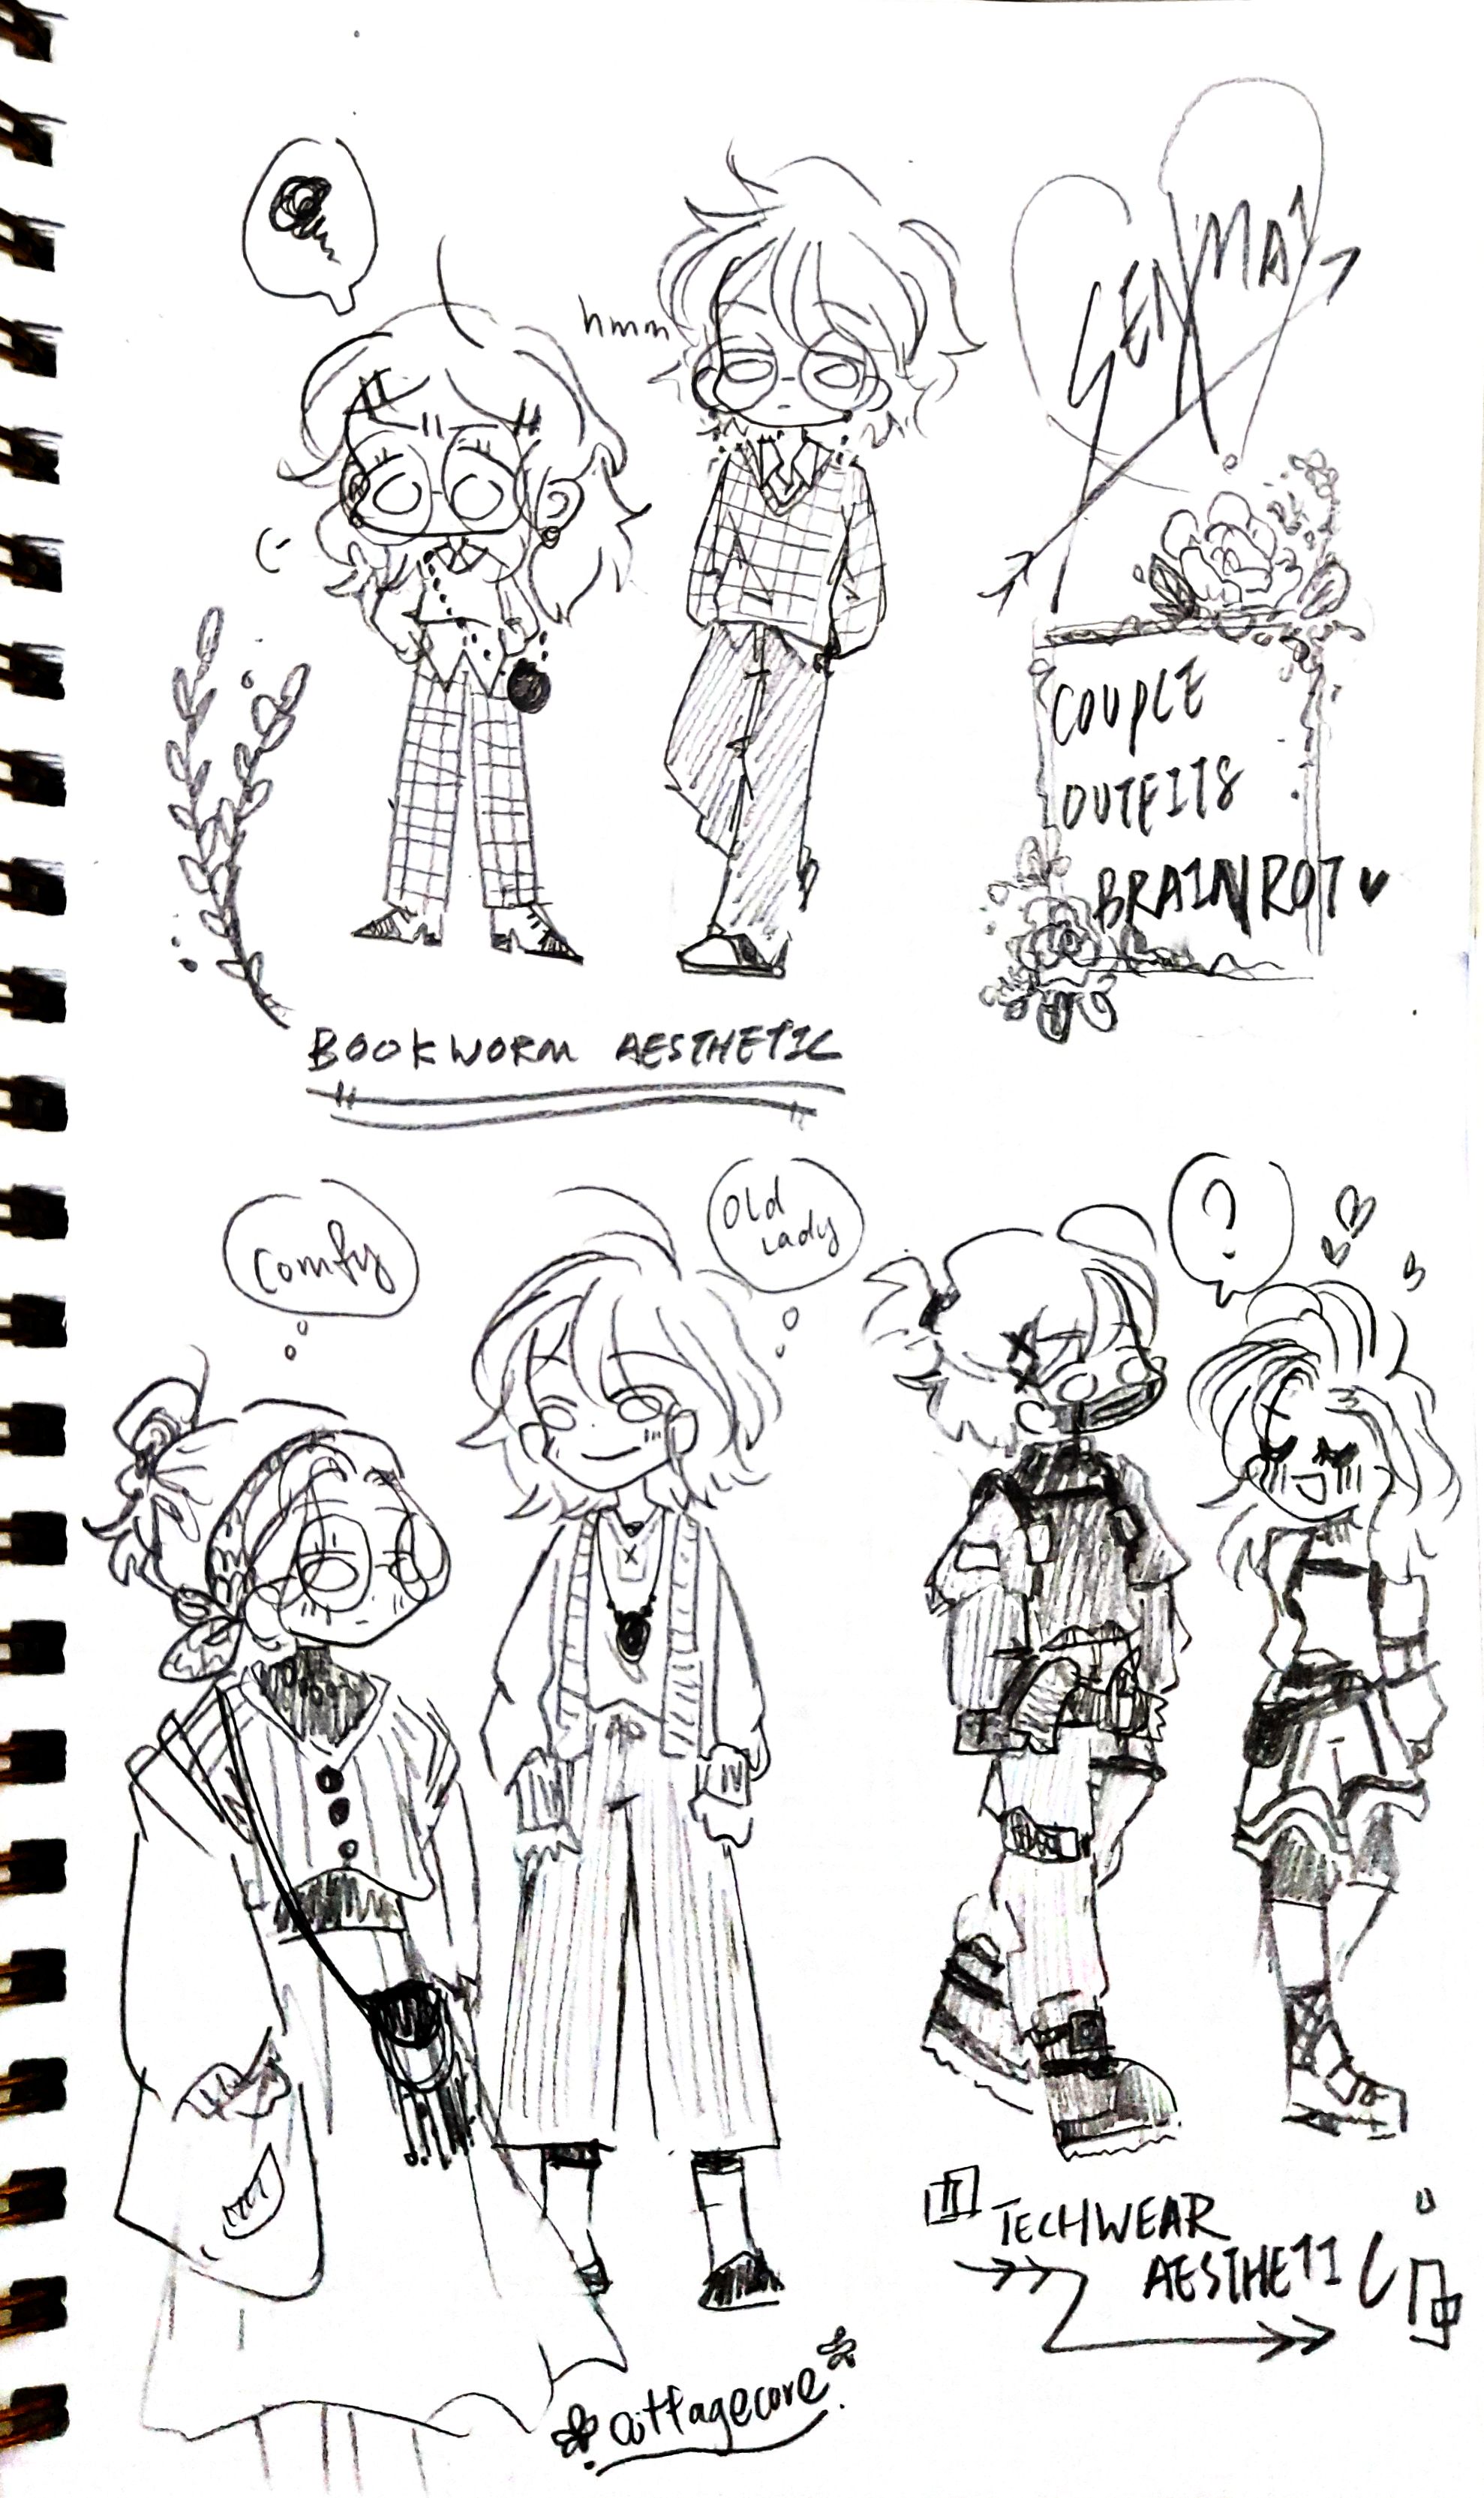 hmm
COUPLE
OUTFITS
BRAINROT
BOOKWORM AESTHETIC
comfy
Old
Lady
?
TECHWEAR
AESTHETIC
cottagecore